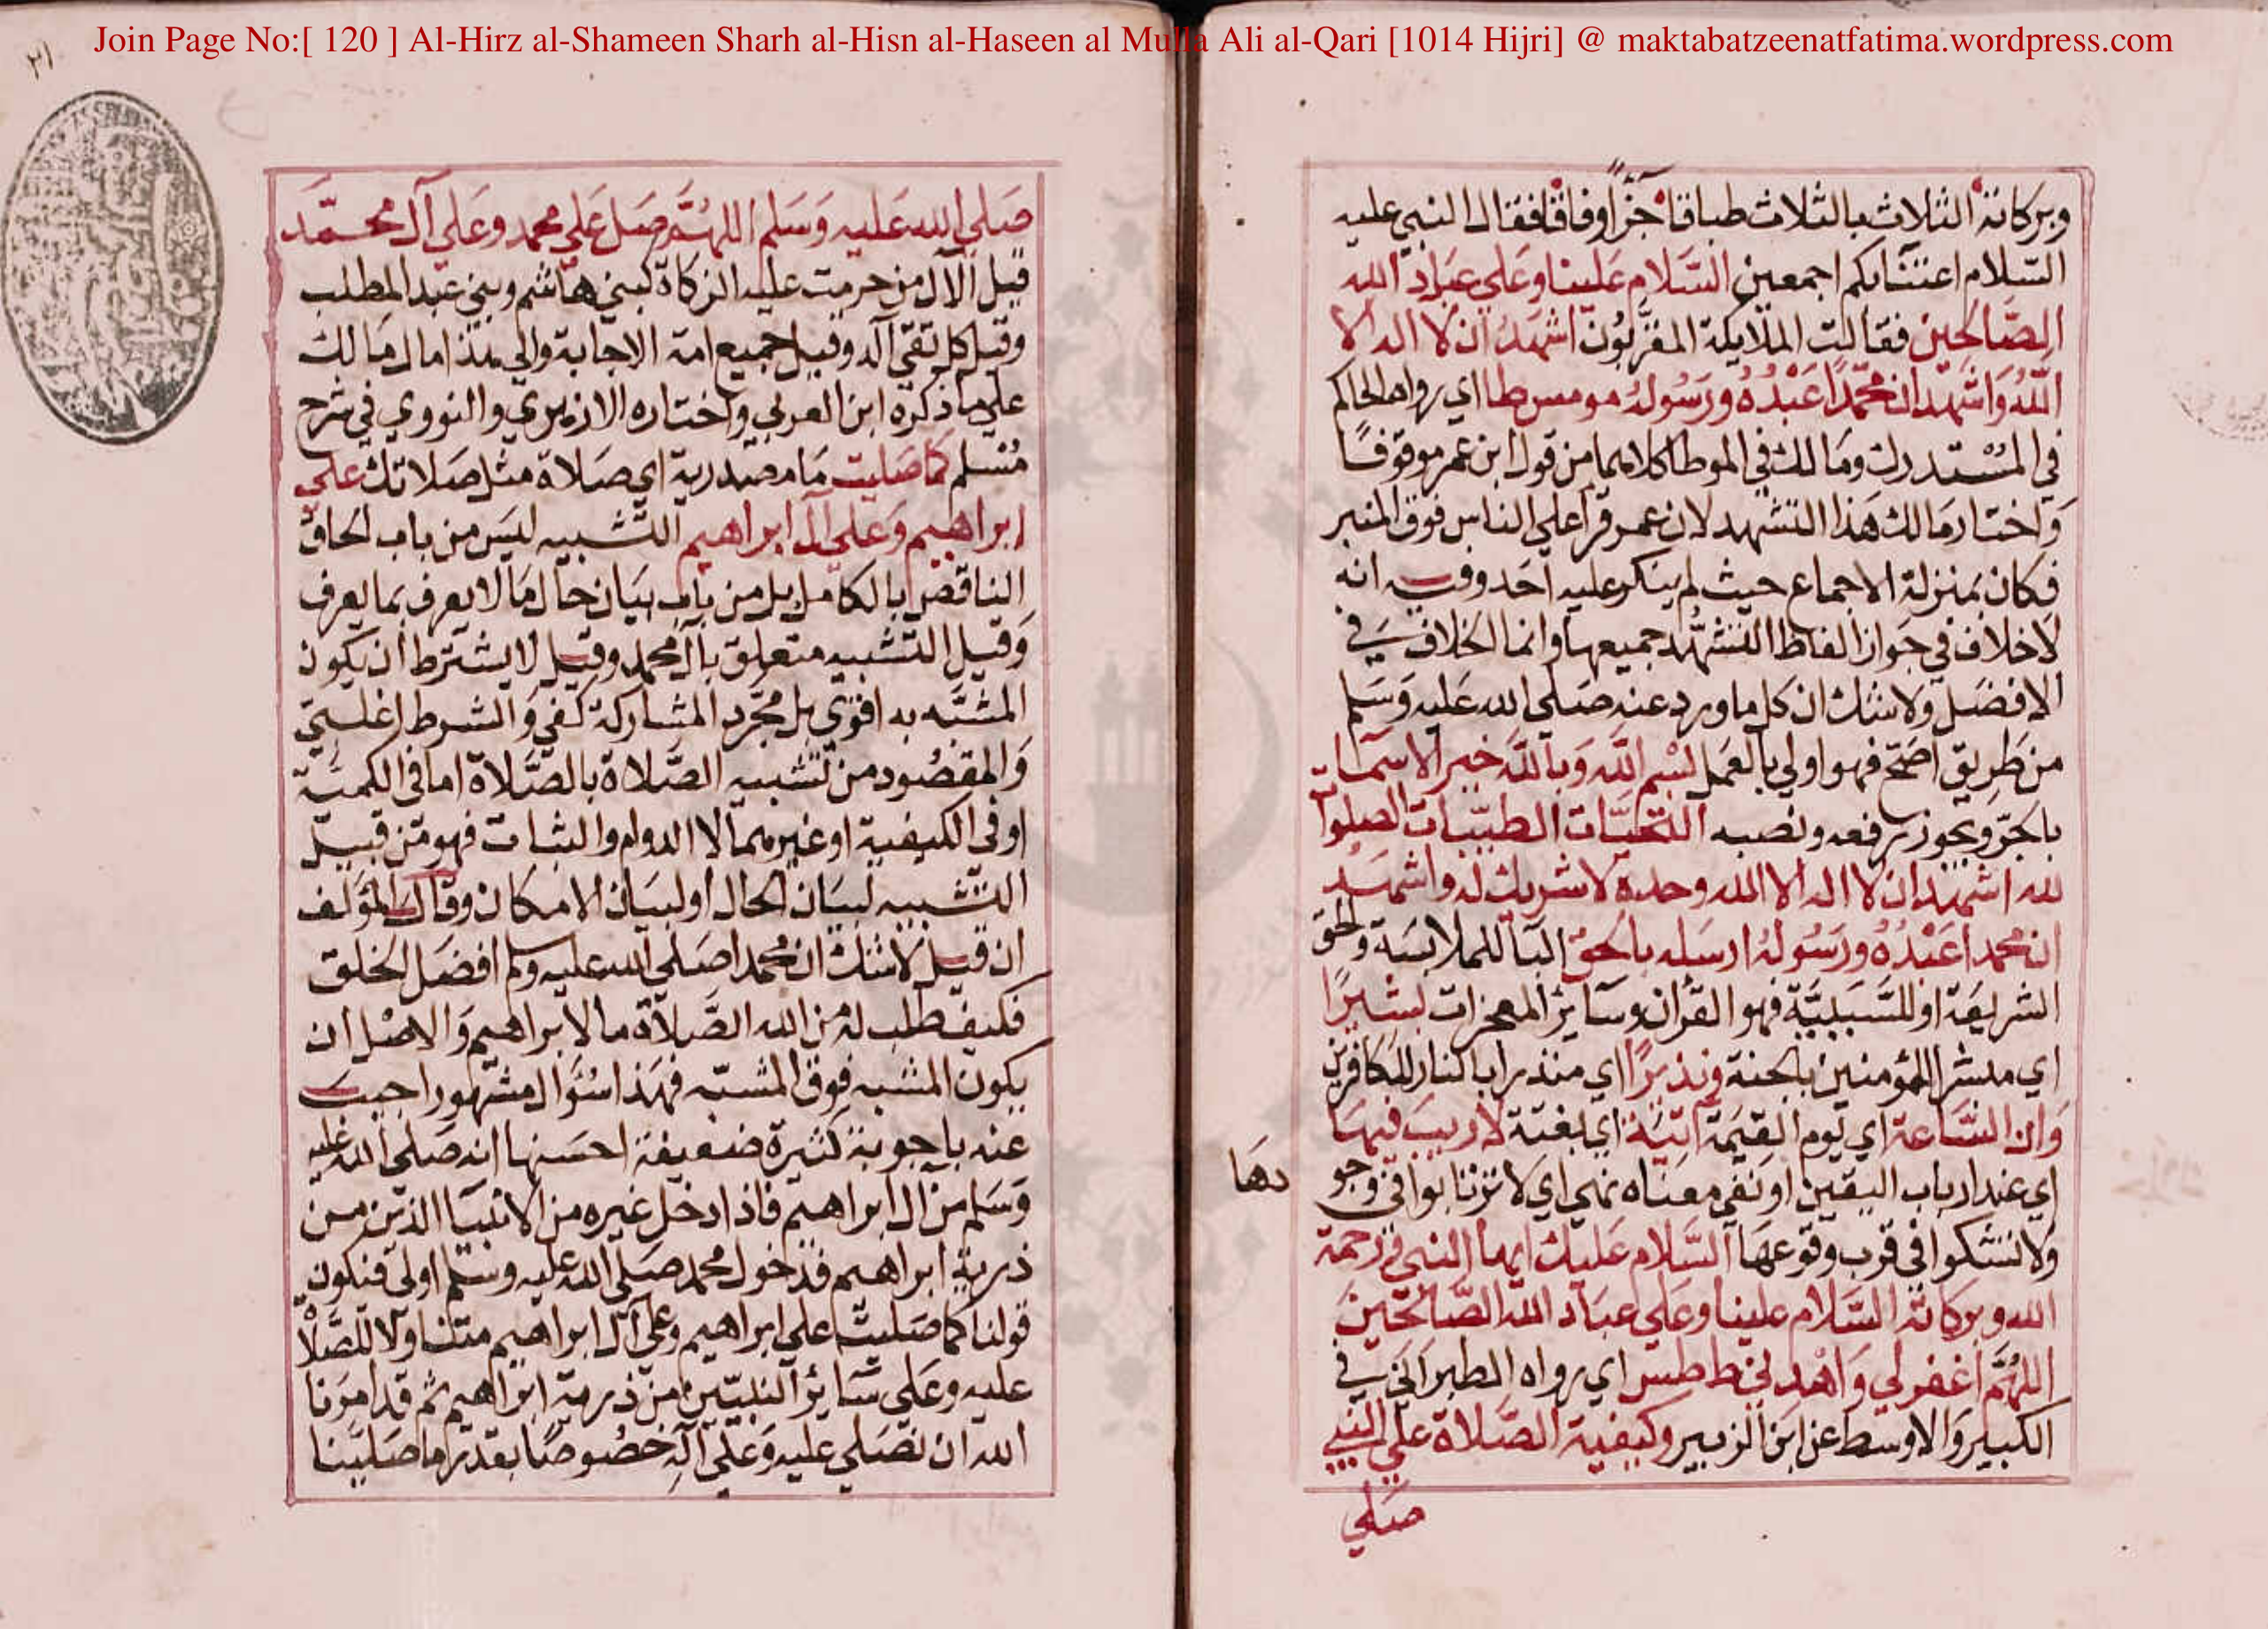 Join Page No:[ 120 ] Al-Hirz al-Shameen Sharh al-Hisn al-Haseen al Mulla Ali al-Qari [1014 Hijri] @ maktabatzeenatfatima.wordpress.com
وبركاته الثلاث بالثلاث طباقا جزاً اوفاقا فقال النبي عليه
السلام اعتنابكم اجمعين السَلام علينا وعَلي عبَاد الله
الصَّالحين فقالت الملايكة المقرَّبُون اشهَدُ ان لا اله الا
اللهُ وَاشهد ان محمَّدًا عَبْدُهُ ورَسُولهُ مو مس طا اي رواه الحاكم
في المُسْتدرك ومَالك في الموطا كلاهما من قول ابن عمر موقوفًا
وَاختار مَالك هَذا التشهد لان عمر قرا علي الناس فوق المنبر
فكان بمَنزلة الاجماع حيث لم ينكر عليه احَد وفيه انه
لاخلاف في جَواز الفاظ التشهُّد جميعها وانما الخلاف في
الافضَل ولا شك ان كل ما ورد عنه صَلي الله عَليه وَسَلم
من طَريق اصَح فهو اولي بالعَمل بسْم الله وَبالله خير الاسمَا
بالجرّ ويجوز رفعه ونصبه التحيَّات الطيّبات الصلوات
لله اشهَد ان لا اله الا الله وحده لا شريك له واشهَد
ان محمدا عَبْدُهُ ورَسُولهُ ارسَله بالحَق البَا للملابسَة والحق
الشريعَة او للسَّبَبيَّة فهو القرْان وسَايرْ المعجزات بشيرًا
اي مبشرا للمؤمنين بالجنة ونذيرًا اي منذرا بالنار للكافرين
وَان السَّاعة اي يَوم القيمَة اتيَة اي بغتة لا ريبَ فيهَا
اي عند ارباب اليقين او نفي معنَاه نهي اي لا ترتابوا في وجو
دهَا
ولا تشكوا في قرب وقوعهَا السَّلام عَليك ايها النبي ورَحمَة
الله وبركاته السَّلام علينا وعَلي عبَاد الله الصَّالحين
اللهُمَّ اغفر لي وَاهْدِني ط طس اي رواه الطبرَاني في
الكبير وَالاوسط عن ابن الزبير وكيفية الصَّلاة علي النبي
صَلي
٣١
صَلي الله عَليه وَسَلم اللهُمَّ صَل عَلي محمد وعَلي آل محمَّد
قيل الآل من حرمت عليه الزكاة كبني هَاشم وبني عَبد المطلب
وقيل كل تقي آله وقيل جميع امة الاجابة والي هذا مال مَالك
علي ما ذكره ابن العربي واختاره الازهري والنووي في شرح
مُسلم كما صَليت مَا مصدرية اي صَلاة مثل صَلاتك علي
ابراهيم وَعلي آل ابراهيم التشبيه ليسَ من باب الحاق
الناقص بالكامل بل من باب بيَان حَال مَا لا يعرف بما يعرف
وَقيل التشبيه متعلق بآل محمد وقيل لا يشترط ان يكون
المشبّه به اقوي بل مجرد المشاركة كفي وَالشرط اغلبيّ
وَالمقصُود من تشبيه الصَّلاة بالصَّلاة اما في الكميَّة
او في الكيفية او غيرهما لا الدوام والثبات فهو من قبيل
التشبيه لبيَان الحال او لبيَان الامكان وقال المؤلف
ان قيل لا شك ان محمدا صَلي الله عليه وسلم افضَل الخلق
فكيف طلب له من الله الصَّلاة ما لابراهيم وَالاصْل ان
يكون المشبه فوق المشبّه فهَذا سُؤال مشهور اجيب
عنه باجوبة كثيرة ضعيفة احسَنها انه صَلي الله عليه
وَسَلم من ال ابراهيم فاذا دخل غيره من الانبيَا الذين من
ذرية ابراهيم فدخول محمد صَلي الله عليه وسَلم اولى فتكون
قولنا كما صَليت علي ابراهيم وعَلي آل ابراهيم متناولا للصَّلاة
عليه وعَلي سَايرْ النبيّين من ذرية ابراهيم ثم قد امرنا
الله ان نصَلي عليه وَعَلي آلهِ خصُوصًا بقدر ما صَلينا